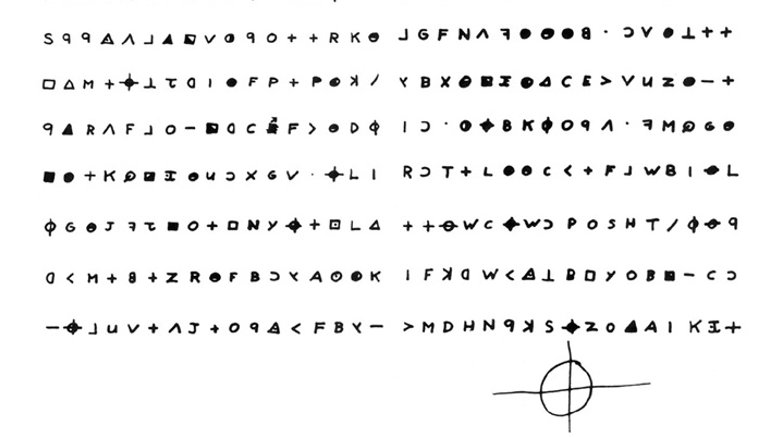 S 9 9 ◬ Λ ⅃ ▲ ◪ V ◑ 9 O + + R K ⊖ ⅃ G F N Λ ꟻ ◕ ● ● 8 · Ɔ V ● ⊥ + +
□ △ M + ⌖ ⊥ τ ᗡ I ● F P + P ◕ ꓘ / Y B X ◕ ◪ I ◕ △ C E > V U Z ● – +
9 ▲ R Λ F ⅃ O – ◪ ᗡ C F > ◕ D Φ I Ɔ · ◑ ⌖ B K Φ O 9 Λ · ꟻ M G ◕
■ ● + K ◪ I ◕ U Ɔ X G V · ⌖ L I R Ɔ T + L ● ◕ C < + F ⅃ W B I ⊖ L
Φ G ◕ J ꟻ τ ■ O + □ N Y ⌖ + ⊡ L △ + + ⊖ W C ⌖ W Ɔ P O S H T / Φ ⊖ 9
ᗡ < M + 8 + Z R ● F B Ɔ Y A ⊙ ◕ K I F ꓘ ᗡ W < ◬ ⊥ B □ Y O B ■ – C Ɔ
– ⌖ ⅃ U V + Λ J + O 9 ◬ < F B Y – > M D H N 9 ꓘ S ⌖ Z O ▲ A I K I +